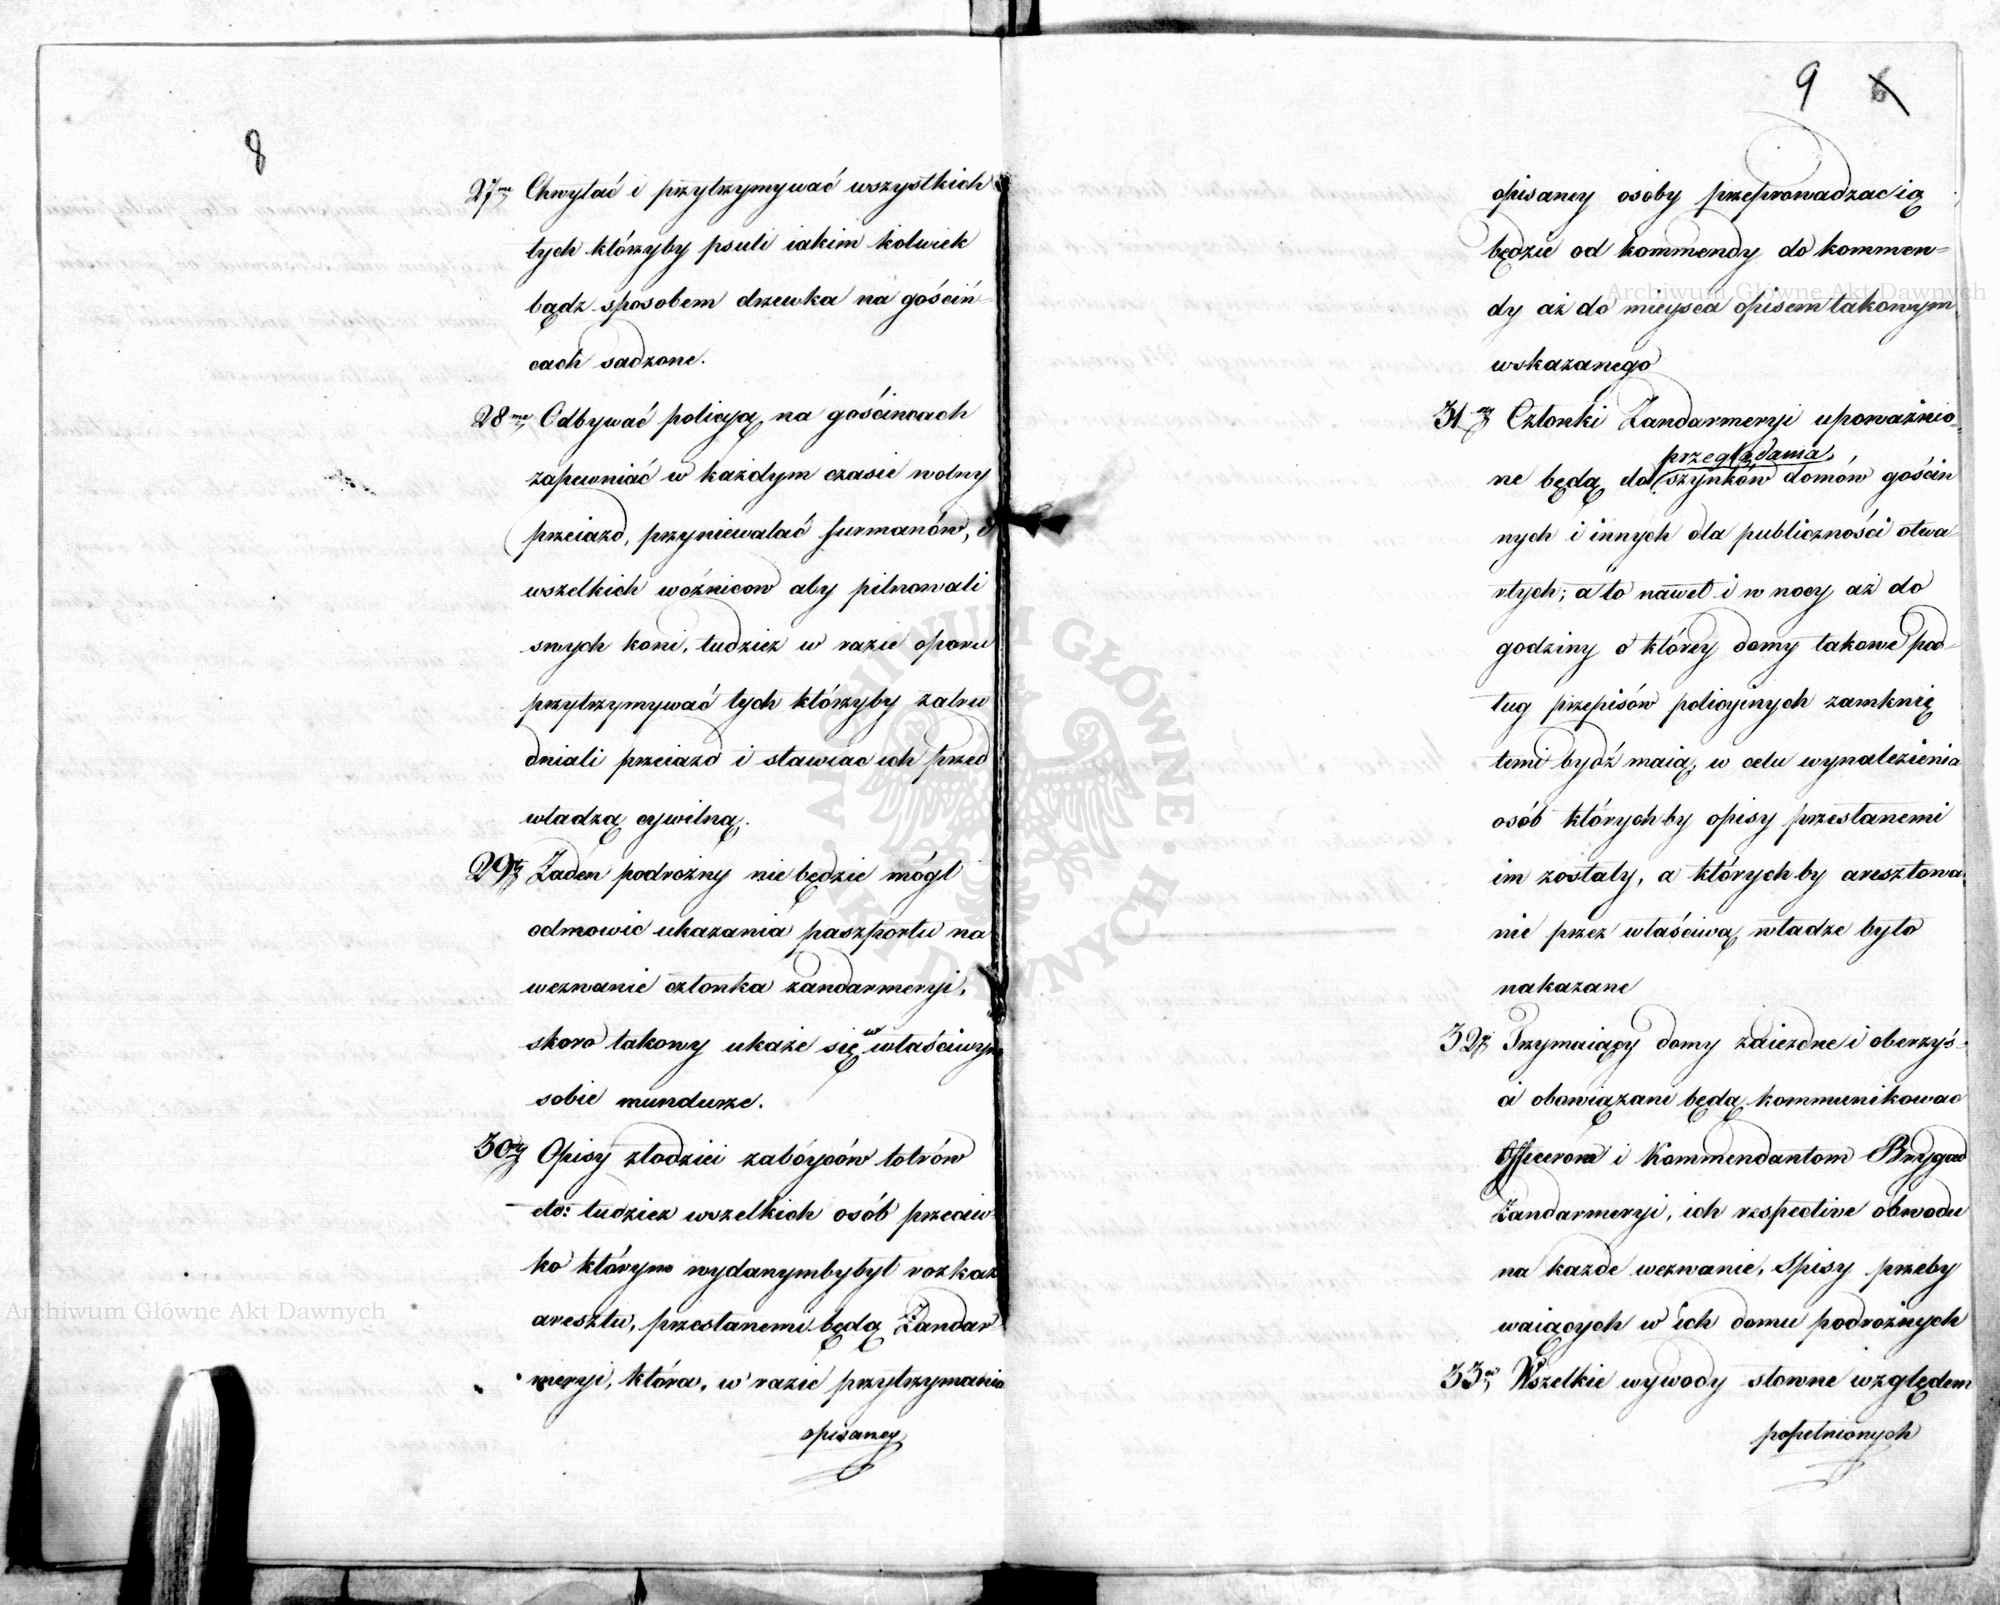 8
27me Chwytać i przytrzymywać wszystkich
tych którzyby psuli iakim kolwiek
bądz sposobem drzewka na gościń-
cach sadzone.
28me Odbywać policyą na gościncach
zapewniać w każdym czasie wolny
przeiazd, przyniewalać furmanów, i
wszelkich woźnicow aby pilnowali
swych koni, tudziez w razie oporu
przytrzymywać tych którzyby zatru
dniali przeiazd i stawiac ich przed
władzą cywilną.
29 Żaden podrożny nie będzie mógł
odmowic ukazania paszportu na
wezwanie członka żandarmeryi,
skoro takowy ukaże się w właściwym
sobie mundurze.
30 Opisy złodziei zabóyców łotrów
etc: tudziez wszelkich osób przeciw
ko którym wydanymbybył rozkaz
aresztu, przesłanemi będą Żandar
meryi, która, w razie przytrzymania
opisaney
9 6
opisaney osoby przeprowadzać ią
będzie od kommendy do kommen=
dy aż do mieysca opisem takowym
wskazanego
31 Członki Żandarmeryi upoważnio
ne będą do szynków domów gościn
przeglądania
nych i innych dla publiczności otwa
rtych; a to nawet i w nocy aż do
godziny o którey domy takowe pod-
ług przepisów policyinych zamknię
temi bydź maią, w celu wynalezienia
osób którychby opisy przesłanemi
im zostały, a którychby aresztowa
nie przez właściwą władze było
nakazane
32 Trzymaiący domy zaiezdne i oberzyś-
ci obowiązani będą kommunikowac
Officerom i Kommendantom Brygad
Żandarmeryi, ich respective obwodu
na każde wezwanie, Spisy przeby
waiących w ich domu podrożnych
33 Wszelkie wywody słowne względem
popełnionych
Archiwum Główne Akt Dawnych
Archiwum Główne Akt Dawnych
ARCHIWUM GŁÓWNE · AKT DAWNYCH ·